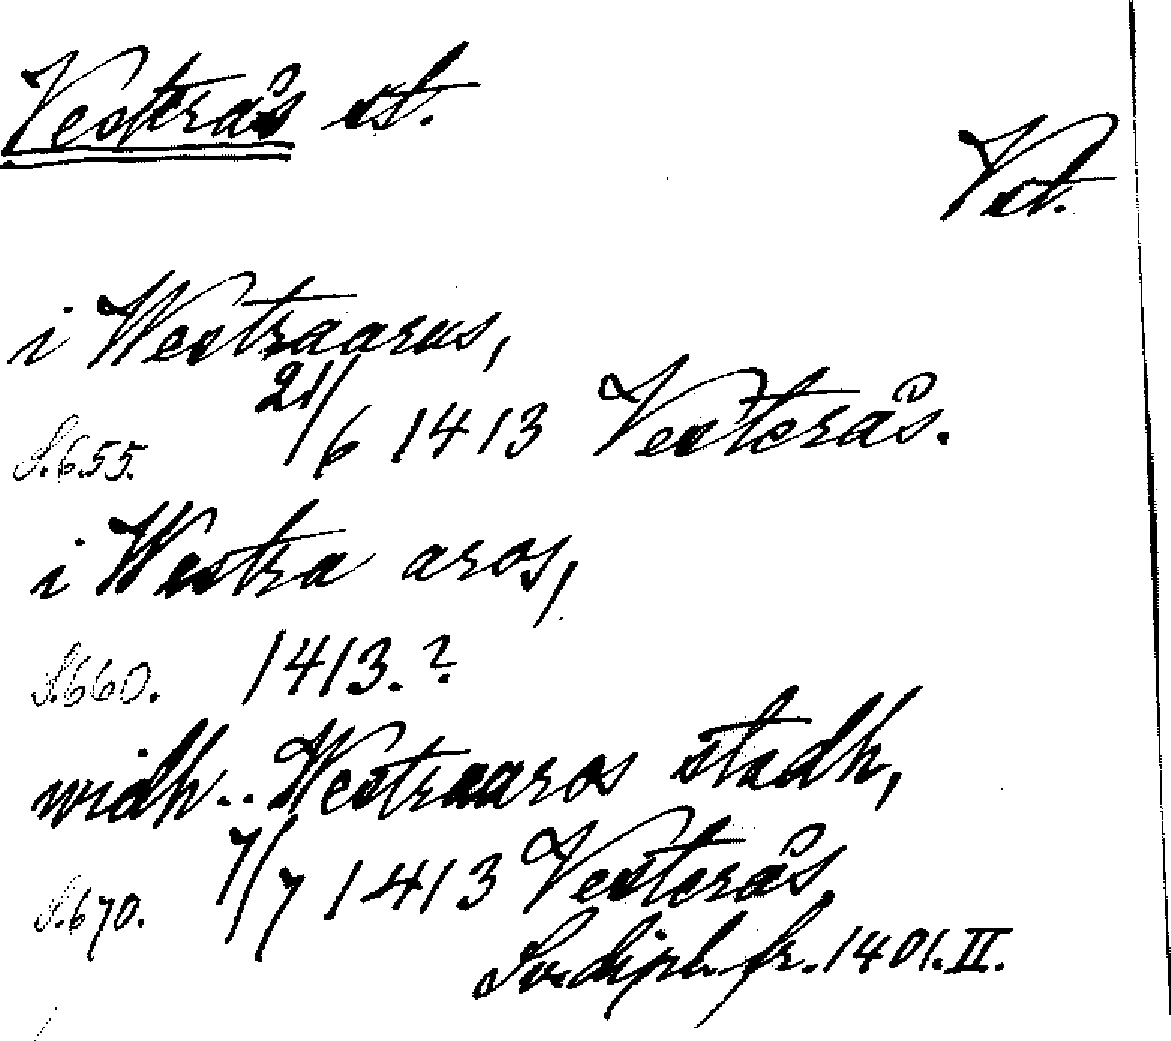 Vesterås st.
Vst.
i Westraarus,
S. 655. 21/6 1413 Vesterås.
i Westra aros,
S. 660. 1413.?
widh .. Westraaros stadh,
S. 670. 7/7 1413 Vesterås,
Sv. dipl. fr. 1401. II.